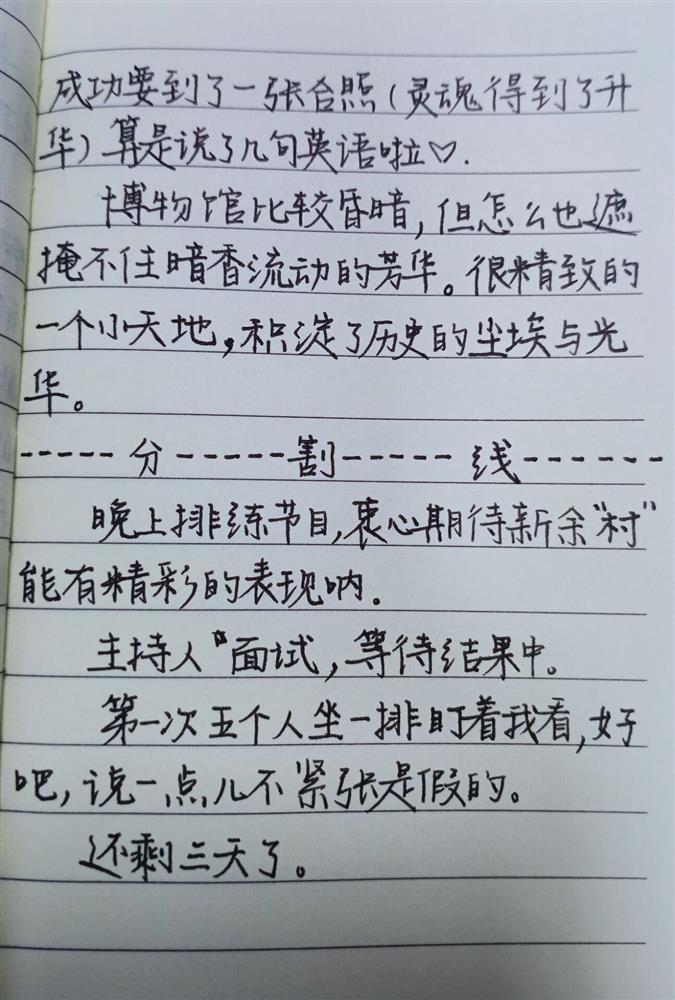 成功要到了一张合照(灵魂得到了升
华)算是说了几句英语啦♡.
博物馆比较昏暗,但怎么也遮
掩不住暗香流动的芳华。很精致的
一个小天地,积淀了历史的尘埃与光
华。
-----分-----割-----线------
晚上排练节目,衷心期待新余"村"
能有精彩的表现呐.
主持人"面试,等待结果中。
第一次五个人坐一排盯着我看,好
吧,说一点儿不紧张是假的。
还剩三天了。